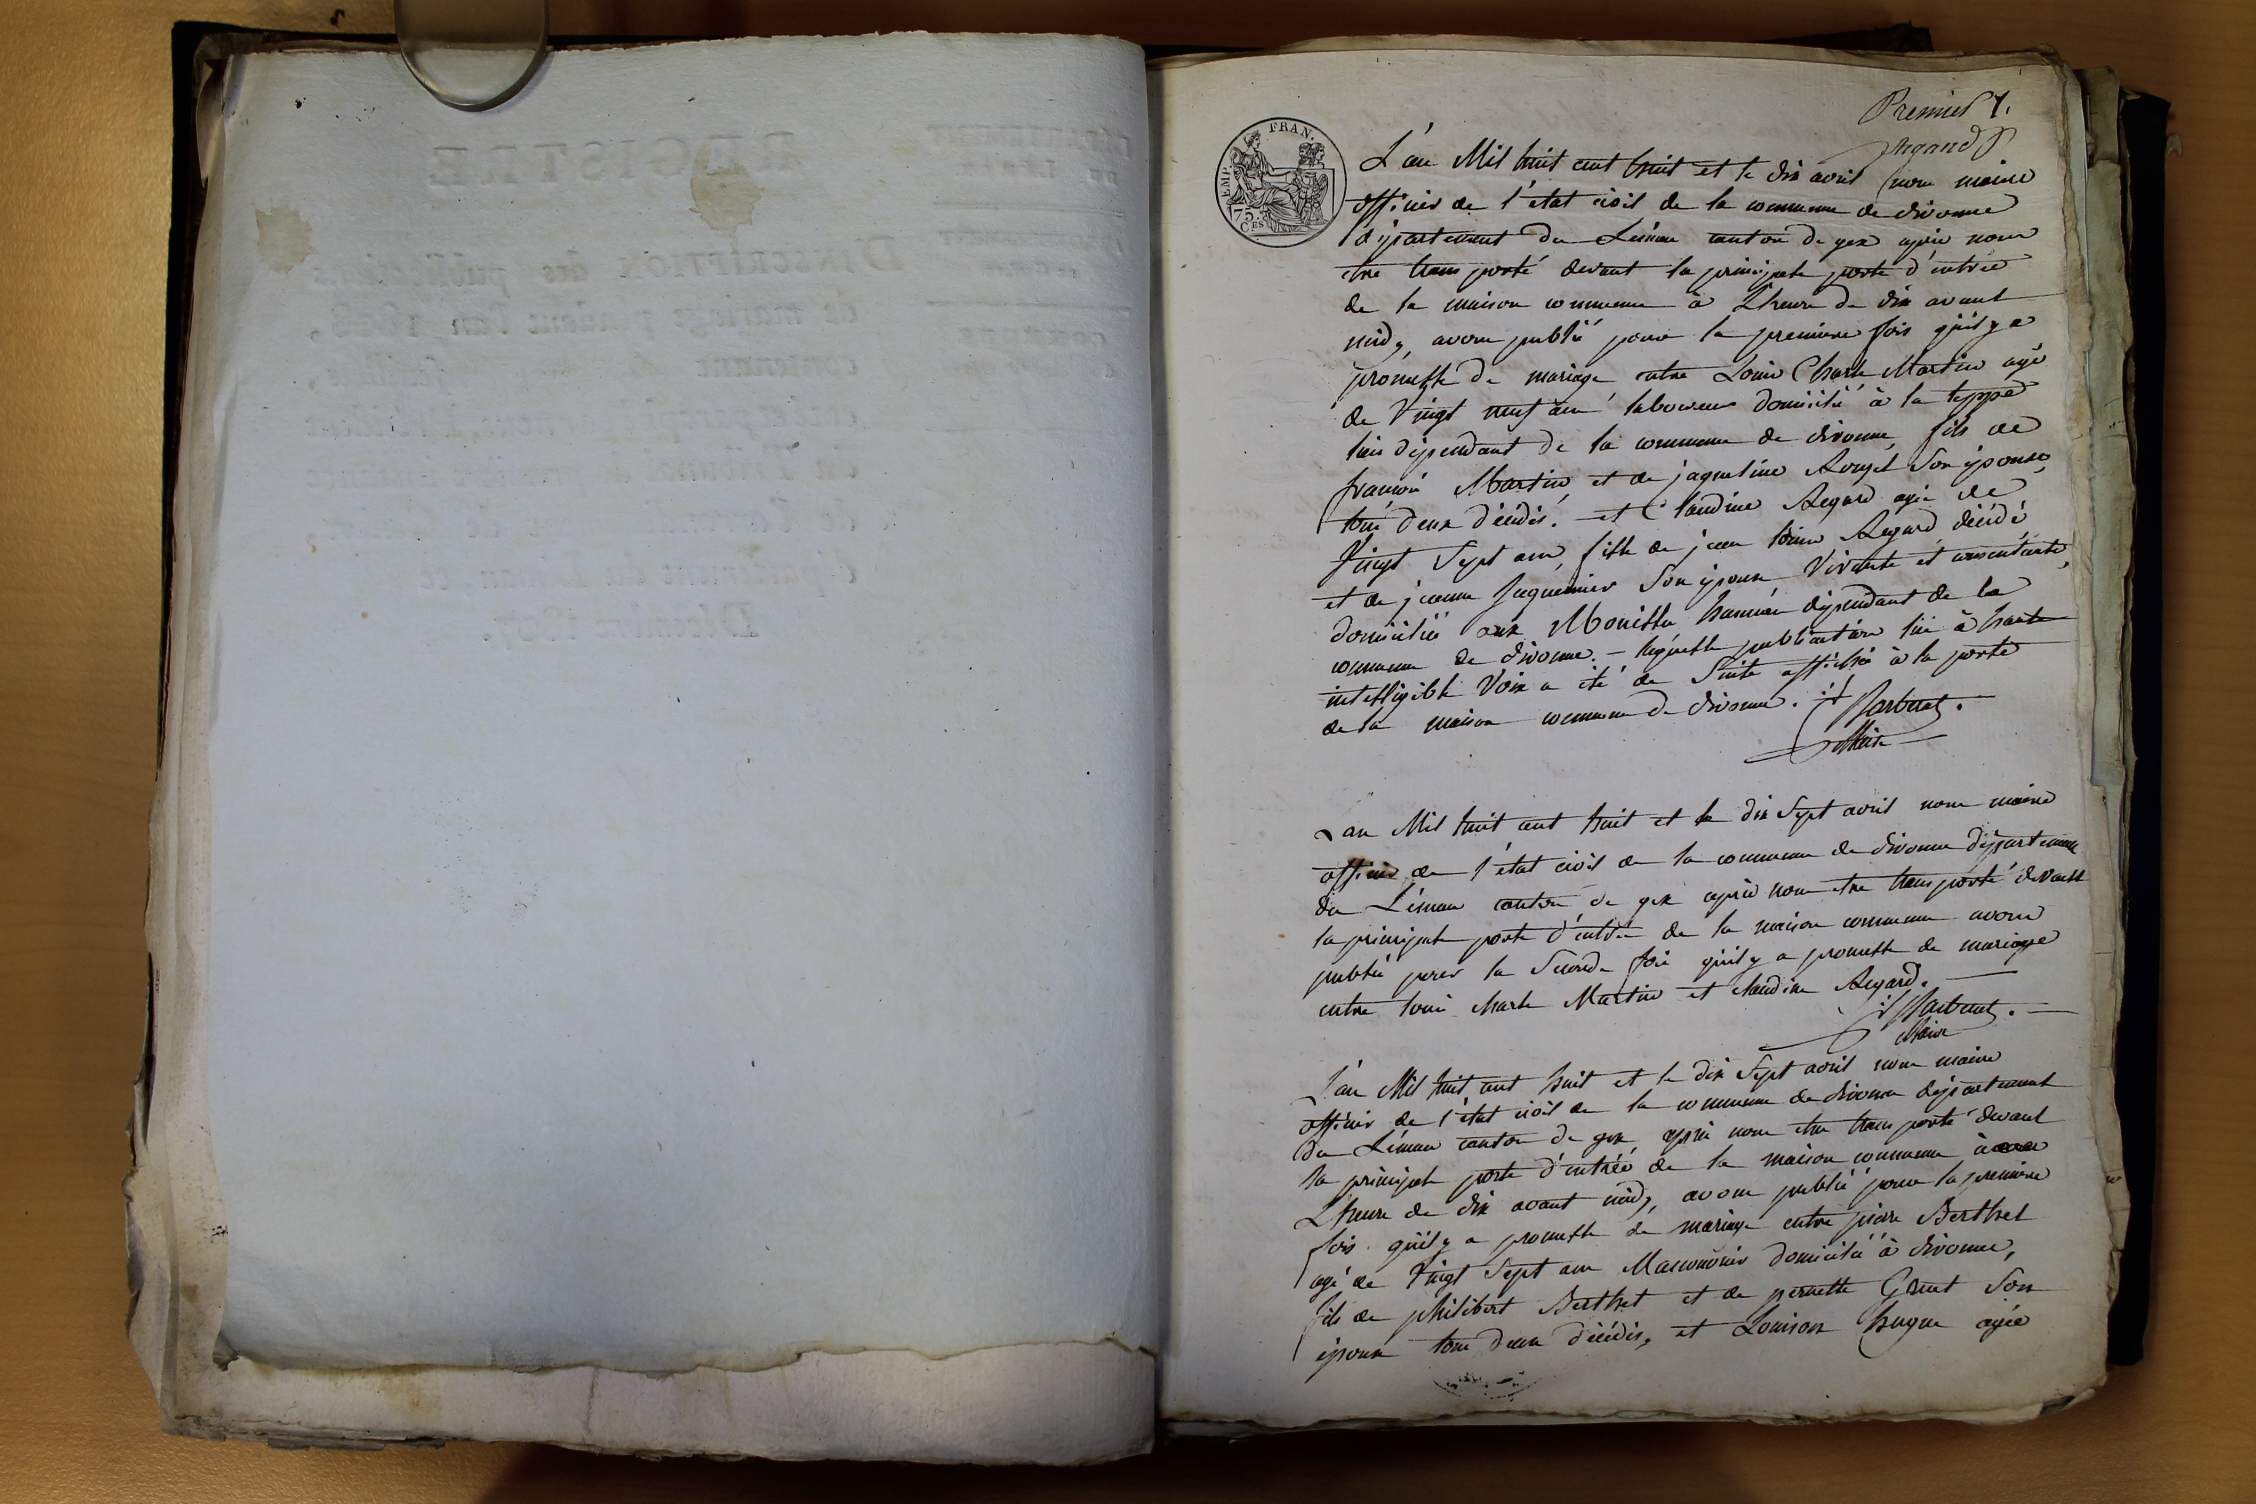 REGISTRE
D'INSCRIPTION des publications
de mariage pendant l'an 1808,
contenant
Département du Léman, ce
Décembre 1807.
Premier 1.
EMP. FRAN.
75.
CES
L'an Mil huit cent huit et le dix avril nous maire
officier de l'état civil de la commune de divonne
département du Léman canton de gex après nous
etre transporté devant la principale porte d'entrée
de la maison commune à L'heure de dix avant
midy, avons publié pour la premiere fois qu'il y a
promesse de mariage entre Louis Charle Martin agé
de Vingt neuf ans laboureur domicilié à la teppe
lieu dépendant de la commune de divonne, fils de
françois Martin et de jaqueline Rouget Son épouse,
tous deux décédés. - et Claudine Regard agée de
Vingt Sept ans, fille de jean louis Regard décédé
et de jeanne Juquemier Son épouse Vivante et consentante,
domiciliés aux Mouilles hameau dépendant de la
commune de divonne. - laquelle publication lue à haute
intelligible Voix a été de Suite affichée à la porte
de la maison commune de divonne.
Maire
L'an Mil huit cent huit et le dix Sept avril nous maire
officier de l'état civil de la commune de divonne département
du Léman canton de gex après nous etre transporté devant
la principale porte d'entrée de la maison commune avons
publié pour la Seconde fois qu'il y a promesse de mariage
entre louis charle Martin et claudine Regard.
Maire
L'an Mil huit cent huit et le dix Sept avril nous maire
officier de l'état civil de la commune de divonne département
du Léman canton de gex après nous etre transporté devant
la principale porte d'entrée de la maison commune à
L'heure de dix avant midy, avons publié pour la premiere
fois qu'il y a promesse de mariage entre pierre Berthet
agé de Vingt Sept ans domicilié à divonne,
fils de philibert Berthet et de pernette Grenet Son
épouse tous deux décédés, et Louison hugue agée